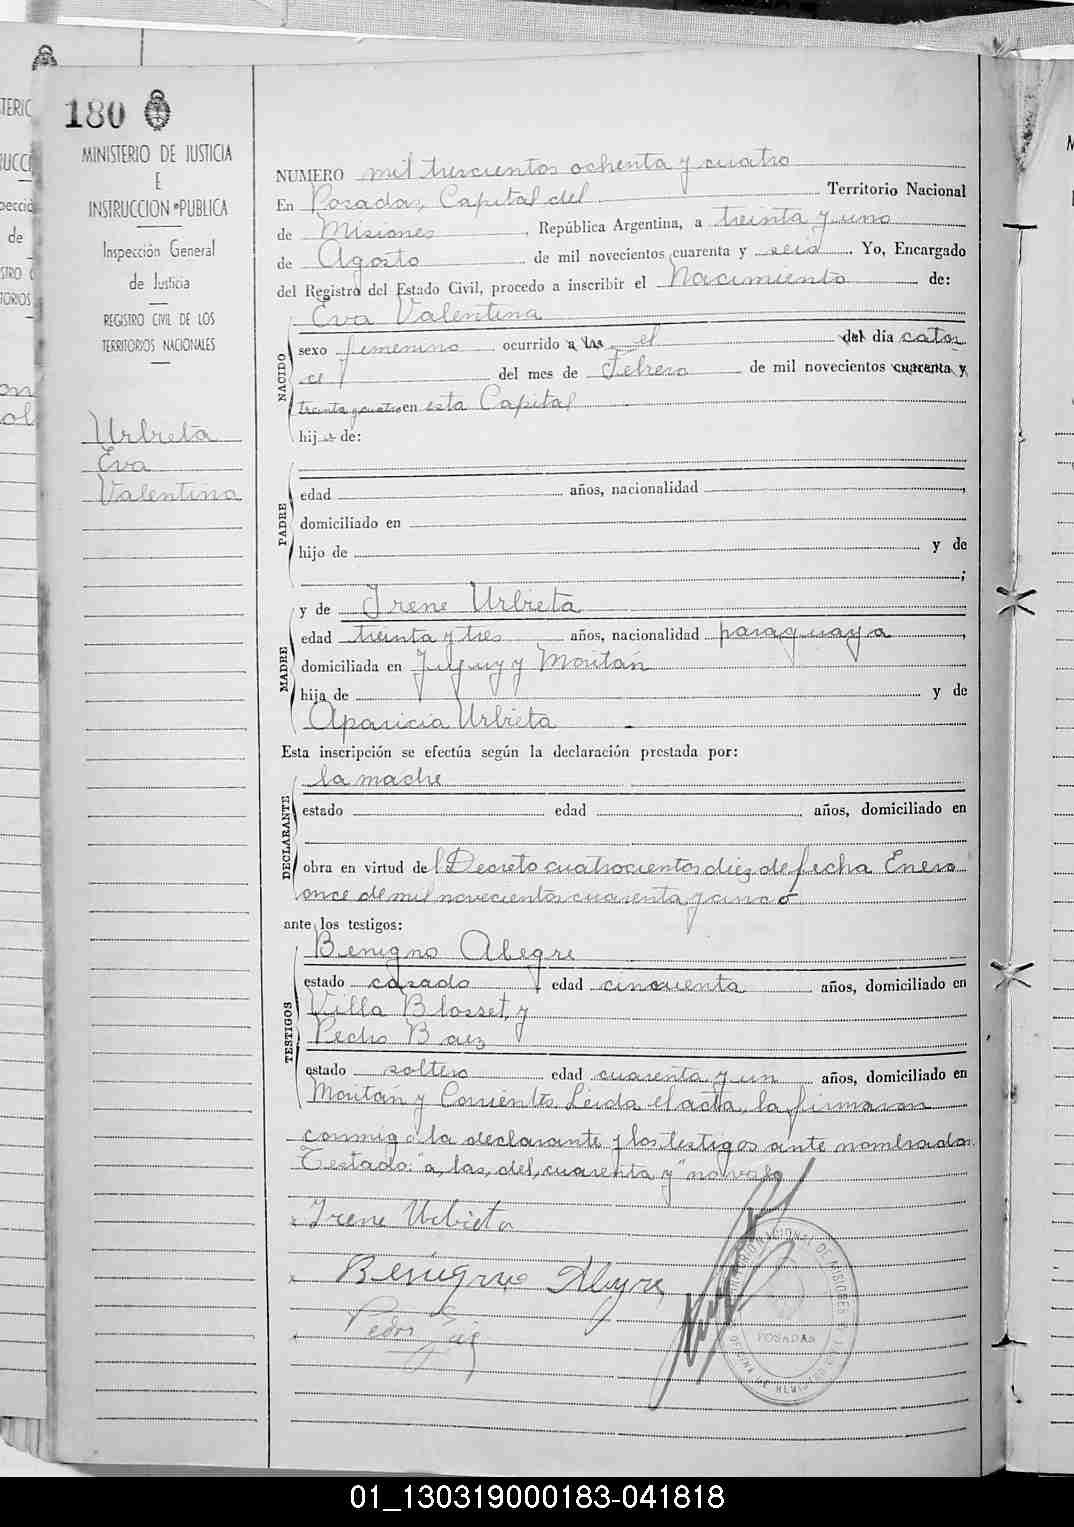 180
MINISTERIO DE JUSTICIA
E
INSTRUCCION PUBLICA
Inspección General
de Justicia
REGISTRO CIVIL DE LOS
TERRITORIOS NACIONALES
Urbieta
Eva
Valentina
NUMERO mil trescientos ochenta y cuatro
En Posadas, Capital del Territorio Nacional
de Misiones, República Argentina, a treinta y uno
de Agosto de mil novecientos cuarenta y seis. Yo, Encargado
del Registro del Estado Civil, procedo a inscribir el Nacimiento de:
Eva Valentina
NACIDO
sexo femenino ocurrido a las el del día cator
ce del mes de Febrero de mil novecientos cuarenta y
treinta y cuatro en esta Capital
hija de:
PADRE
edad años, nacionalidad ,
domiciliado en
hijo de y de
;
y de Irene Urbieta
MADRE
edad treinta y tres años, nacionalidad paraguaya,
domiciliada en Jujuy y Moritán
hija de y de
Aparicia Urbieta
Esta inscripción se efectúa según la declaración prestada por:
la madre
DECLARANTE
estado edad años, domiciliado en
obra en virtud del Decreto cuatrocientos diez de fecha Enero
once de mil novecientos cuarenta y cinco
ante los testigos:
Benigno Alegre
TESTIGOS
estado casado edad cincuenta años, domiciliado en
Villa Blosset, y
Pedro Baez
estado soltero edad cuarenta y un años, domiciliado en
Moritán y Corrientes. Leida el acta, la firmaron
conmigo la declarante y los testigos ante nombrados.
Testado: "a, las, del, cuarenta y" no vale
Irene Urbieta
Benigno Alegre
Pedro
TERRITORIO NACIONAL DE MISIONES
POSADAS
OFICINA DE REGISTRO
01_130319000183-041818